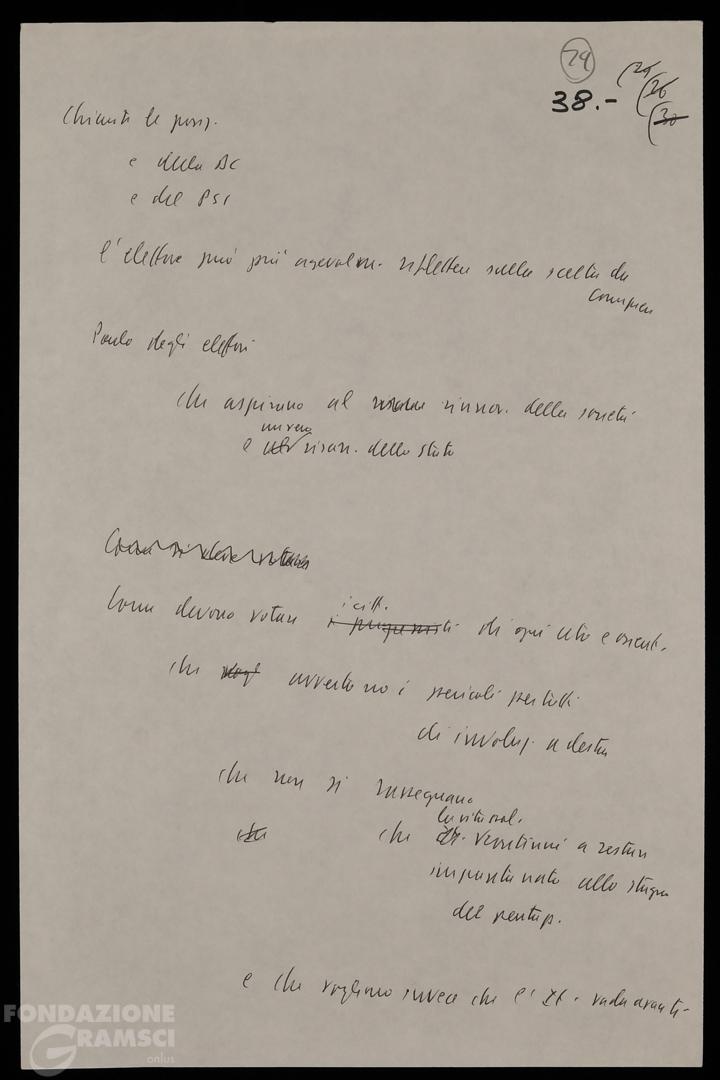 29
38.-
(29
(26
(30
Chiarite le posiz.
e della DC
e del PSI
l'elettore può più agevolm. riflettere sulla scelta da
compiere
Parlo degli elettori
che aspirano al rinnov. della società
un vero
e risan. dello Stato
Come si deve votare
i citt.
Come devono votare di ogni ceto e orient.
che avvertono i pericoli per tutti
di involuz. a destra
che non si rassegnano
la vita naz.
che continui a restare
impantanata allo stagno
del pentap.
e che vogliono invece che l'It. vada avanti-
FONDAZIONE
GRAMSCI
onlus